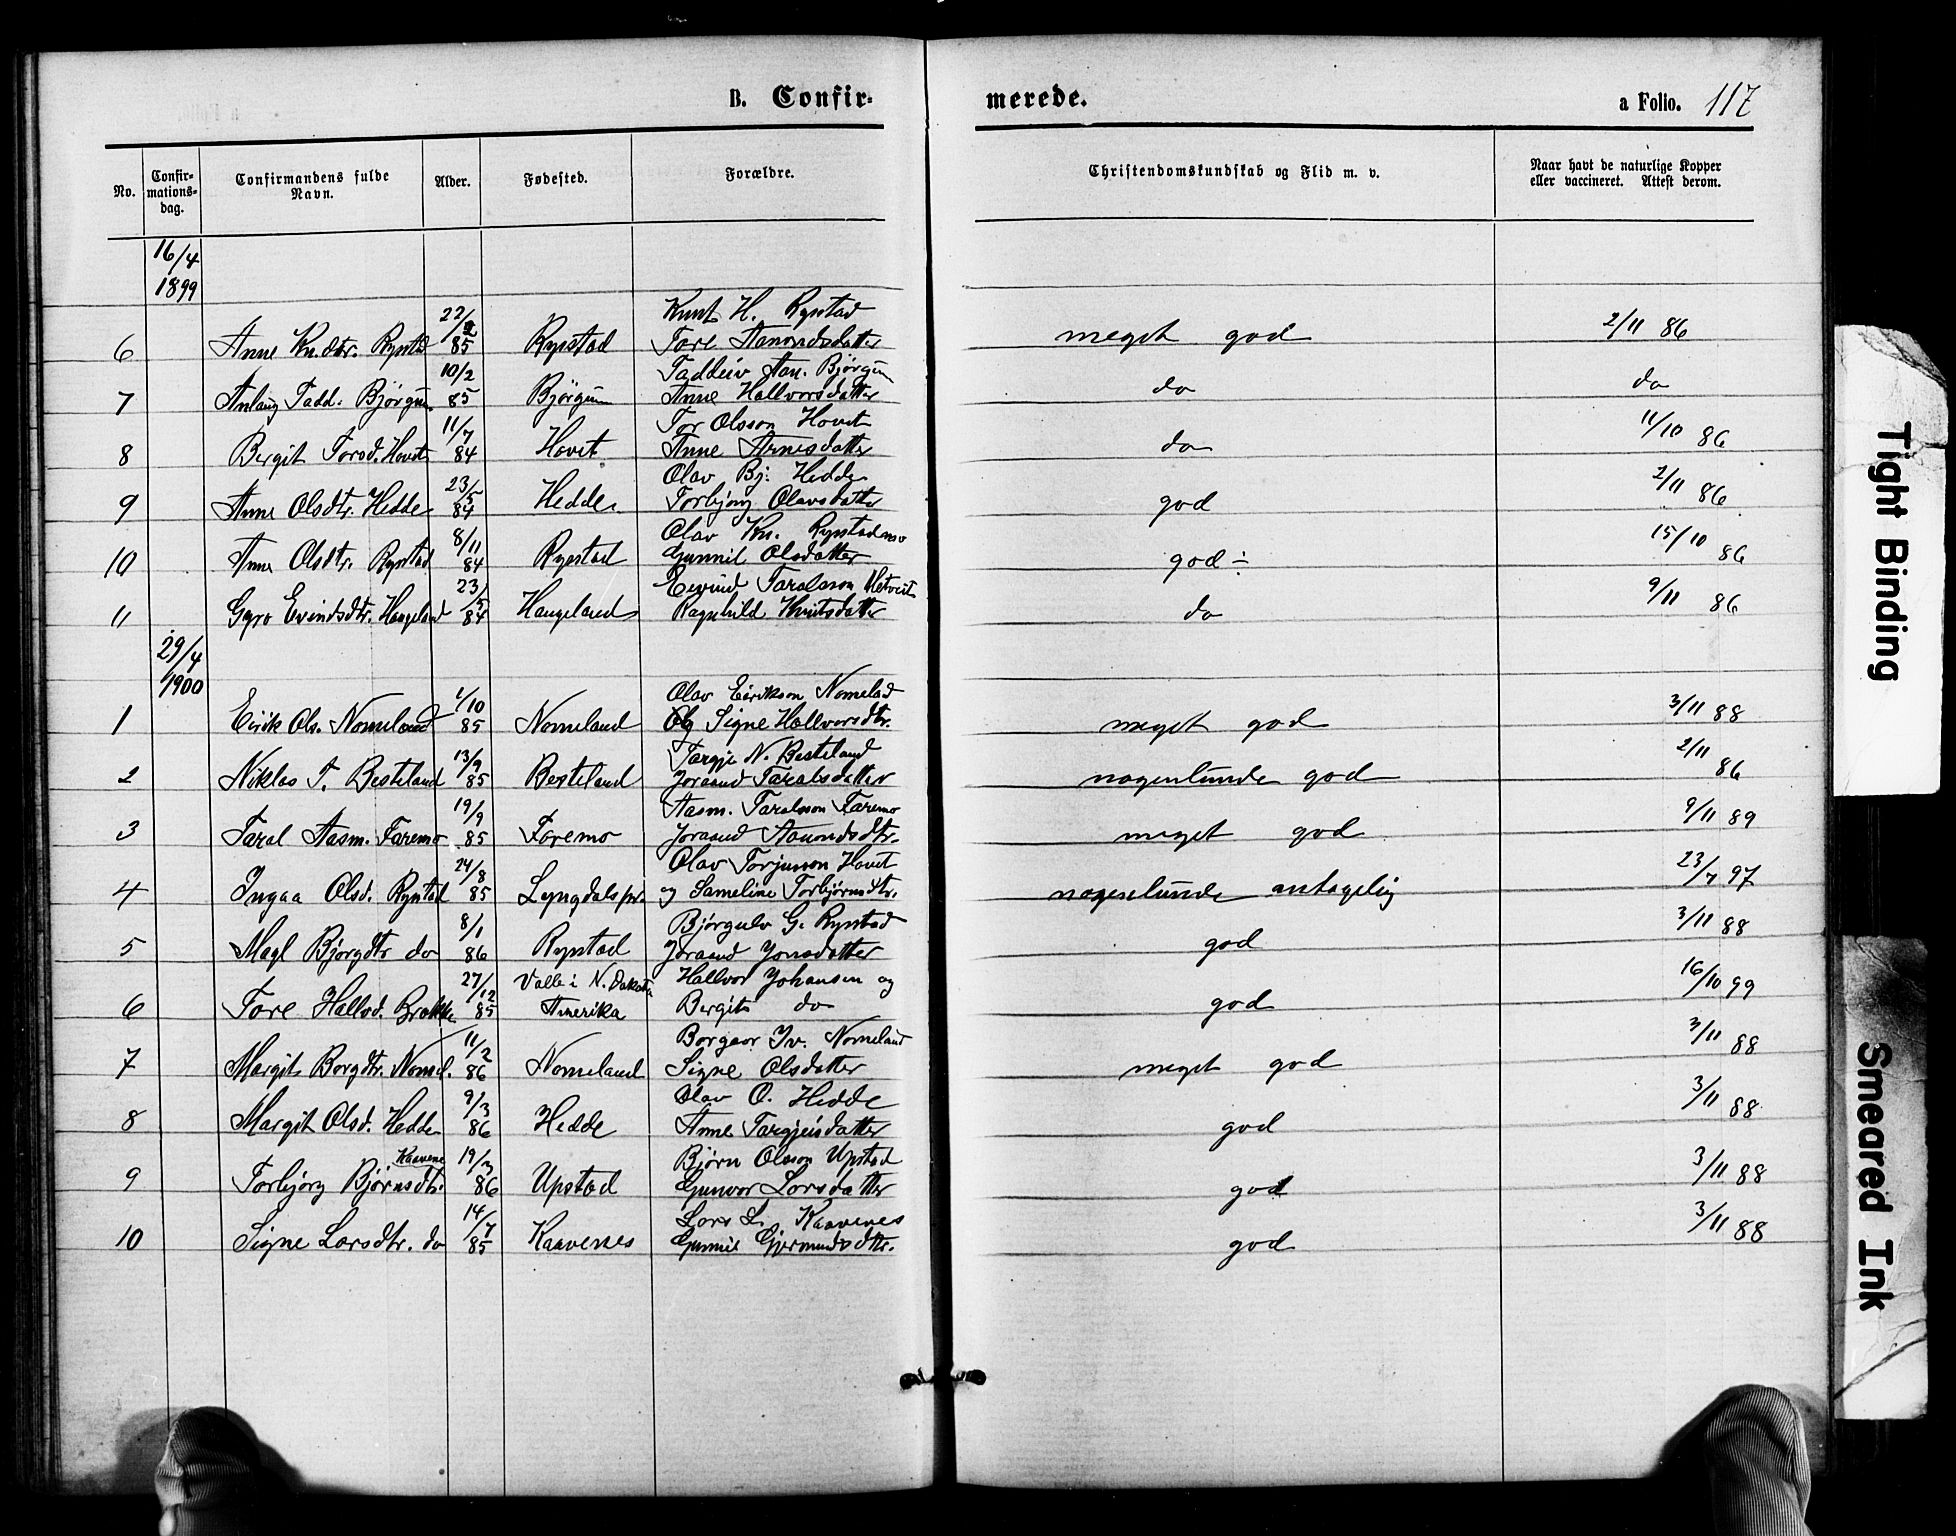 B. Confir-
merede.
a Folio. 117
No.
Confir-
mations-
dag.
Confirmandens fulde
Navn.
Alder.
Fødested.
Forældre.
Christendomskundskab og Flid m. v.
Naar havt de naturlige Kopper
eller vaccineret. Attest derom.
16/4
1899
22/2 Knut H. Rystad
6 Anne Kn.dtr. Rystad 85 Rystad Tore Aamondsdatter meget god 2/11 86
10/2 Taddeiv Aan. Bjørgum
7 Anlaug Tadd. Bjørgum 85 Bjørgum Anne Hallvorsdatter do do
11/7 Tor Olsson Hovet
8 Bergit Torsd. Hovet 84 Hovet Anne Arnesdatter do 11/10 86
23/5 Olav Bj. Hedde
9 Anne Olsdtr. Hedde 84 Hedde Torbjørg Olavsdatter god 2/11 86
8/11 Olav Kn. Rystadmo
10 Anne Olsdtr. Rystad 84 Rystad Gunnil Olsdatter god ÷ 15/10 86
23/5 Eivind Taralsson Hetveit
11 Gyro Evindsdtr. Haugeland 84 Haugeland Ragnhild Knutsdatter do 9/11 86
29/4
1900
1/10 Olav Eirikson Nomelad
1 Eirik Ols. Nomeland 85 Nomeland Og Signe Hallvorsdtr. meget god 3/11 88
13/9 Targje N. Besteland
2 Niklas T. Besteland 85 Besteland Joraand Taralsdatter nogenlunde god 2/11 86
19/9 Aasm. Taralsson Faremo
3 Taral Aasm. Faremo 85 Faremo Joraand Aamondsdtr. meget god 9/11 89
24/8 Olav Torjusson Hovet
4 Ingaa Olsd. Rystad 85 Lyngdals pr. og Sameline Torbjørnsdtr. nogenlunde antagelig 23/7 97
8/1 Bjørgulv G. Rystad
5 Magl Bjørgdtr do 86 Rystad Joraand Jonsdatter god 3/11 88
27/12 Valle i N. Dakota Hallvor Johansen og
6 Tore Hallvd. Brokke 85 Amerika Bergit do god 16/10 99
11/2 Borgaar Iv. Nomeland
7 Margit Borgdtr. Nomel. 86 Nomeland Signe Olsdatter meget god 3/11 88
9/3 Olav O. Hedde
8 Margit Olsd. Hedde 86 Hedde Anne Targjeisdatter god 3/11 88
Kaavene 19/3 Bjørn Olsson Upstad
9 Torbjørg Bjørnsdtr. 86 Upstad Gunvor Larsdatter god 3/11 88
14/7 Lars L. Kaavenes
10 Signe Larsdtr. do 85 Kaavenes Gunnil Gjermundsdtr. god 3/11 88
Tight Binding
Smeared Ink